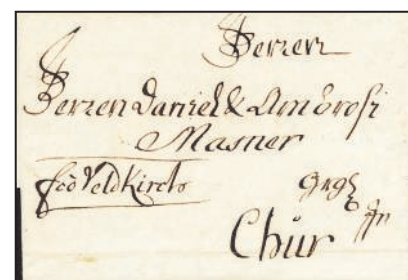 Herren
Herren Daniel & Ambrosi
Masner
fco Veldkirch
in
Chur